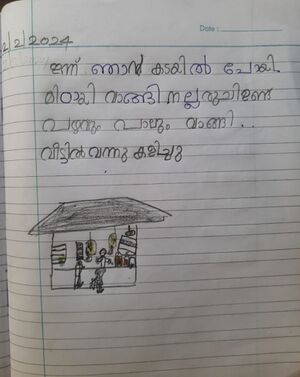 Date :
2/2/2024
ഇന്ന് ഞാൻ കടയിൽ പോയി.
മിഠായി വാങ്ങി നല്ലരുചിണ്ട
പഴവും പാലും വാങ്ങി ..
വീട്ടിൽ വന്നു കളിച്ചു